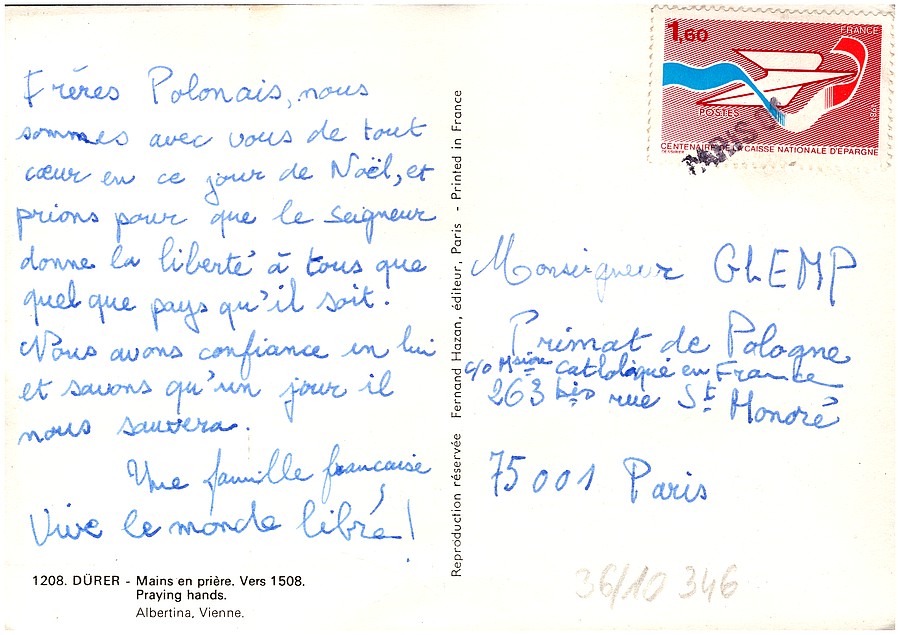 Frères Polonais, nous
sommes avec vous de tout
cœur en ce jour de Noël, et
prions pour que le Seigneur
donne la liberté à tous que
quel que pays qu'il soit.
Nous avons confiance en lui
et savons qu'un jour il
nous sauvera.
Une famille française
Vive le monde libre!
1208. DÜRER - Mains en prière. Vers 1508.
Praying hands.
Albertina, Vienne.
Reproduction réservée Fernand Hazan, éditeur, Paris - Printed in France
1,60
FRANCE
POSTES
1981
CENTENAIRE DE LA CAISSE NATIONALE D'ÉPARGNE
PARIS
Monseigneur GLEMP
Primat de Pologne
c/o Msion Catholique en France
263 bis rue St Honoré
75001 Paris
36/10 346